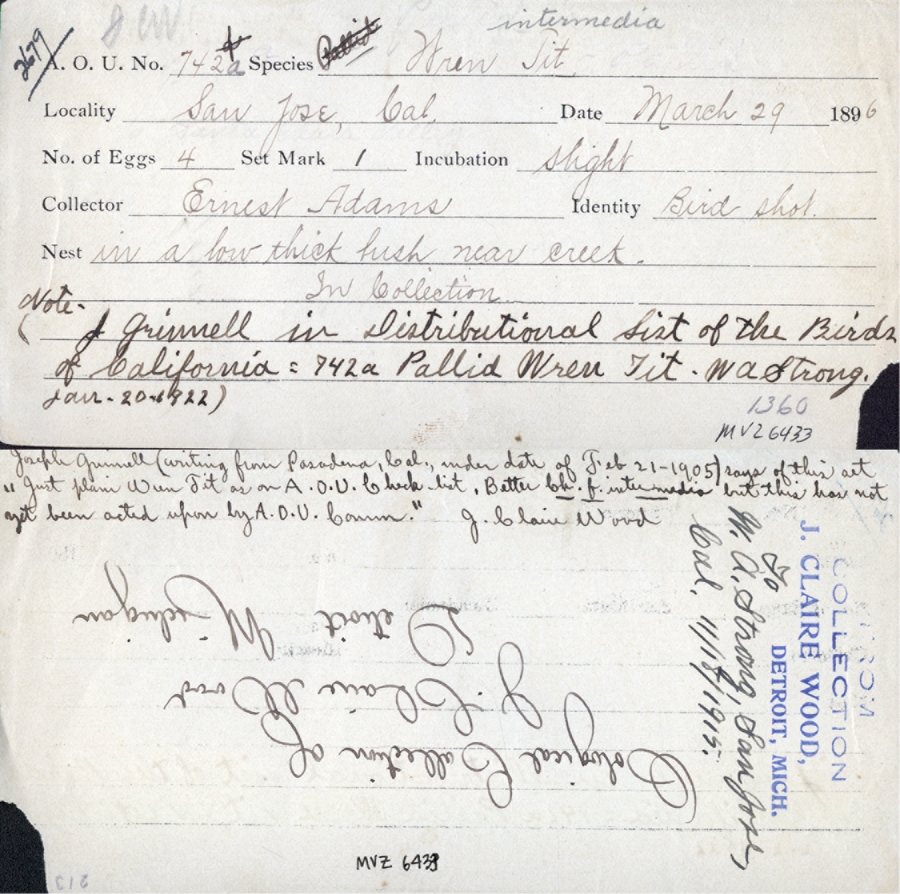 intermedia
2679
A. O. U. No. 742a Species Pallid Wren Tit
Locality San Jose, Cal. Date March 29 1896
No. of Eggs 4 Set Mark 1 Incubation slight
Collector Ernest Adams Identity Bird shot.
Nest in a low thick bush near creek.
In Collection
Note-
( J Grinnell in Distributional List of the Birds
of California = 742a Pallid Wren Tit - WA Strong.
Jan-20-1922)
1360
MVZ 6433
Joseph Grinnell (writing from Pasadena, Cal., under date of Feb 21-1905) says of this set
"Just plain Wren Tit as on A.O.U. Check list. Better Ch. f. intermedia but this has not
yet been acted upon by A.O.U. Comm." J. Claire Wood
FROM
COLLECTION
J. CLAIRE WOOD,
DETROIT, MICH.
To
W. A. Strong, San Jose,
Cal. 11/18/1915.
Oological Collection of
J. Claire Wood
Detroit Michigan
MVZ 6433
213